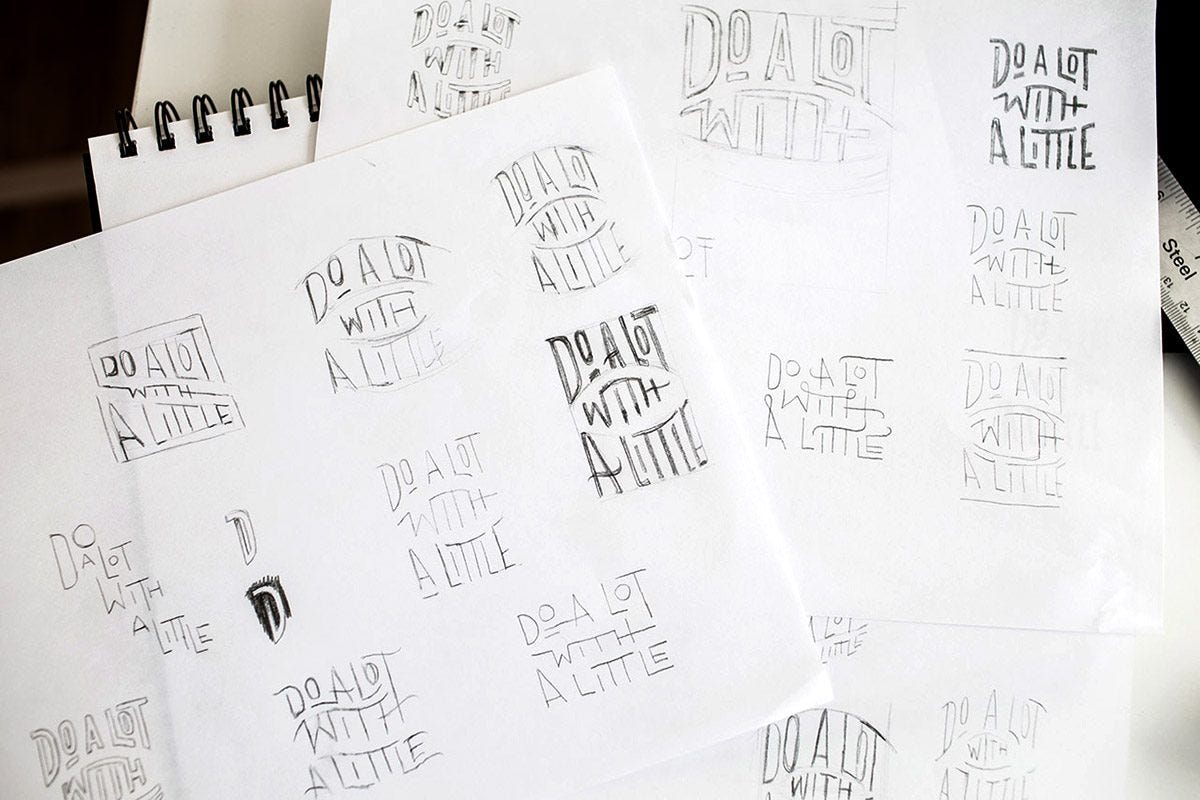 DO A LOT
WITH
A LITTLE
DO A LOT
WITH
DO A LOT
WITH
A LITTLE
DO A LOT
WITH
A LITTLE
DO A LOT
WITH
A LITTLE
DO A LOT
WITH
A LITTLE
DO A LOT
WITH
A LITTLE
DO A LOT
WITH
A LITTLE
DO A LOT
WITH
A LITTLE
DO A LOT
WITH
A LITTLE
DO A LOT
WITH
A LITTLE
OT
DO A LOT
WITH
A LITTLE
D
D
DO A LOT
WITH
A LITTLE
DO A LOT
WITH
A LITTLE
DO A LOT
WITH
DO A LOT
WITH
A LITTLE
DO A LOT
WITH
DO A LOT
WITH
A LITTLE
Steel
13
12